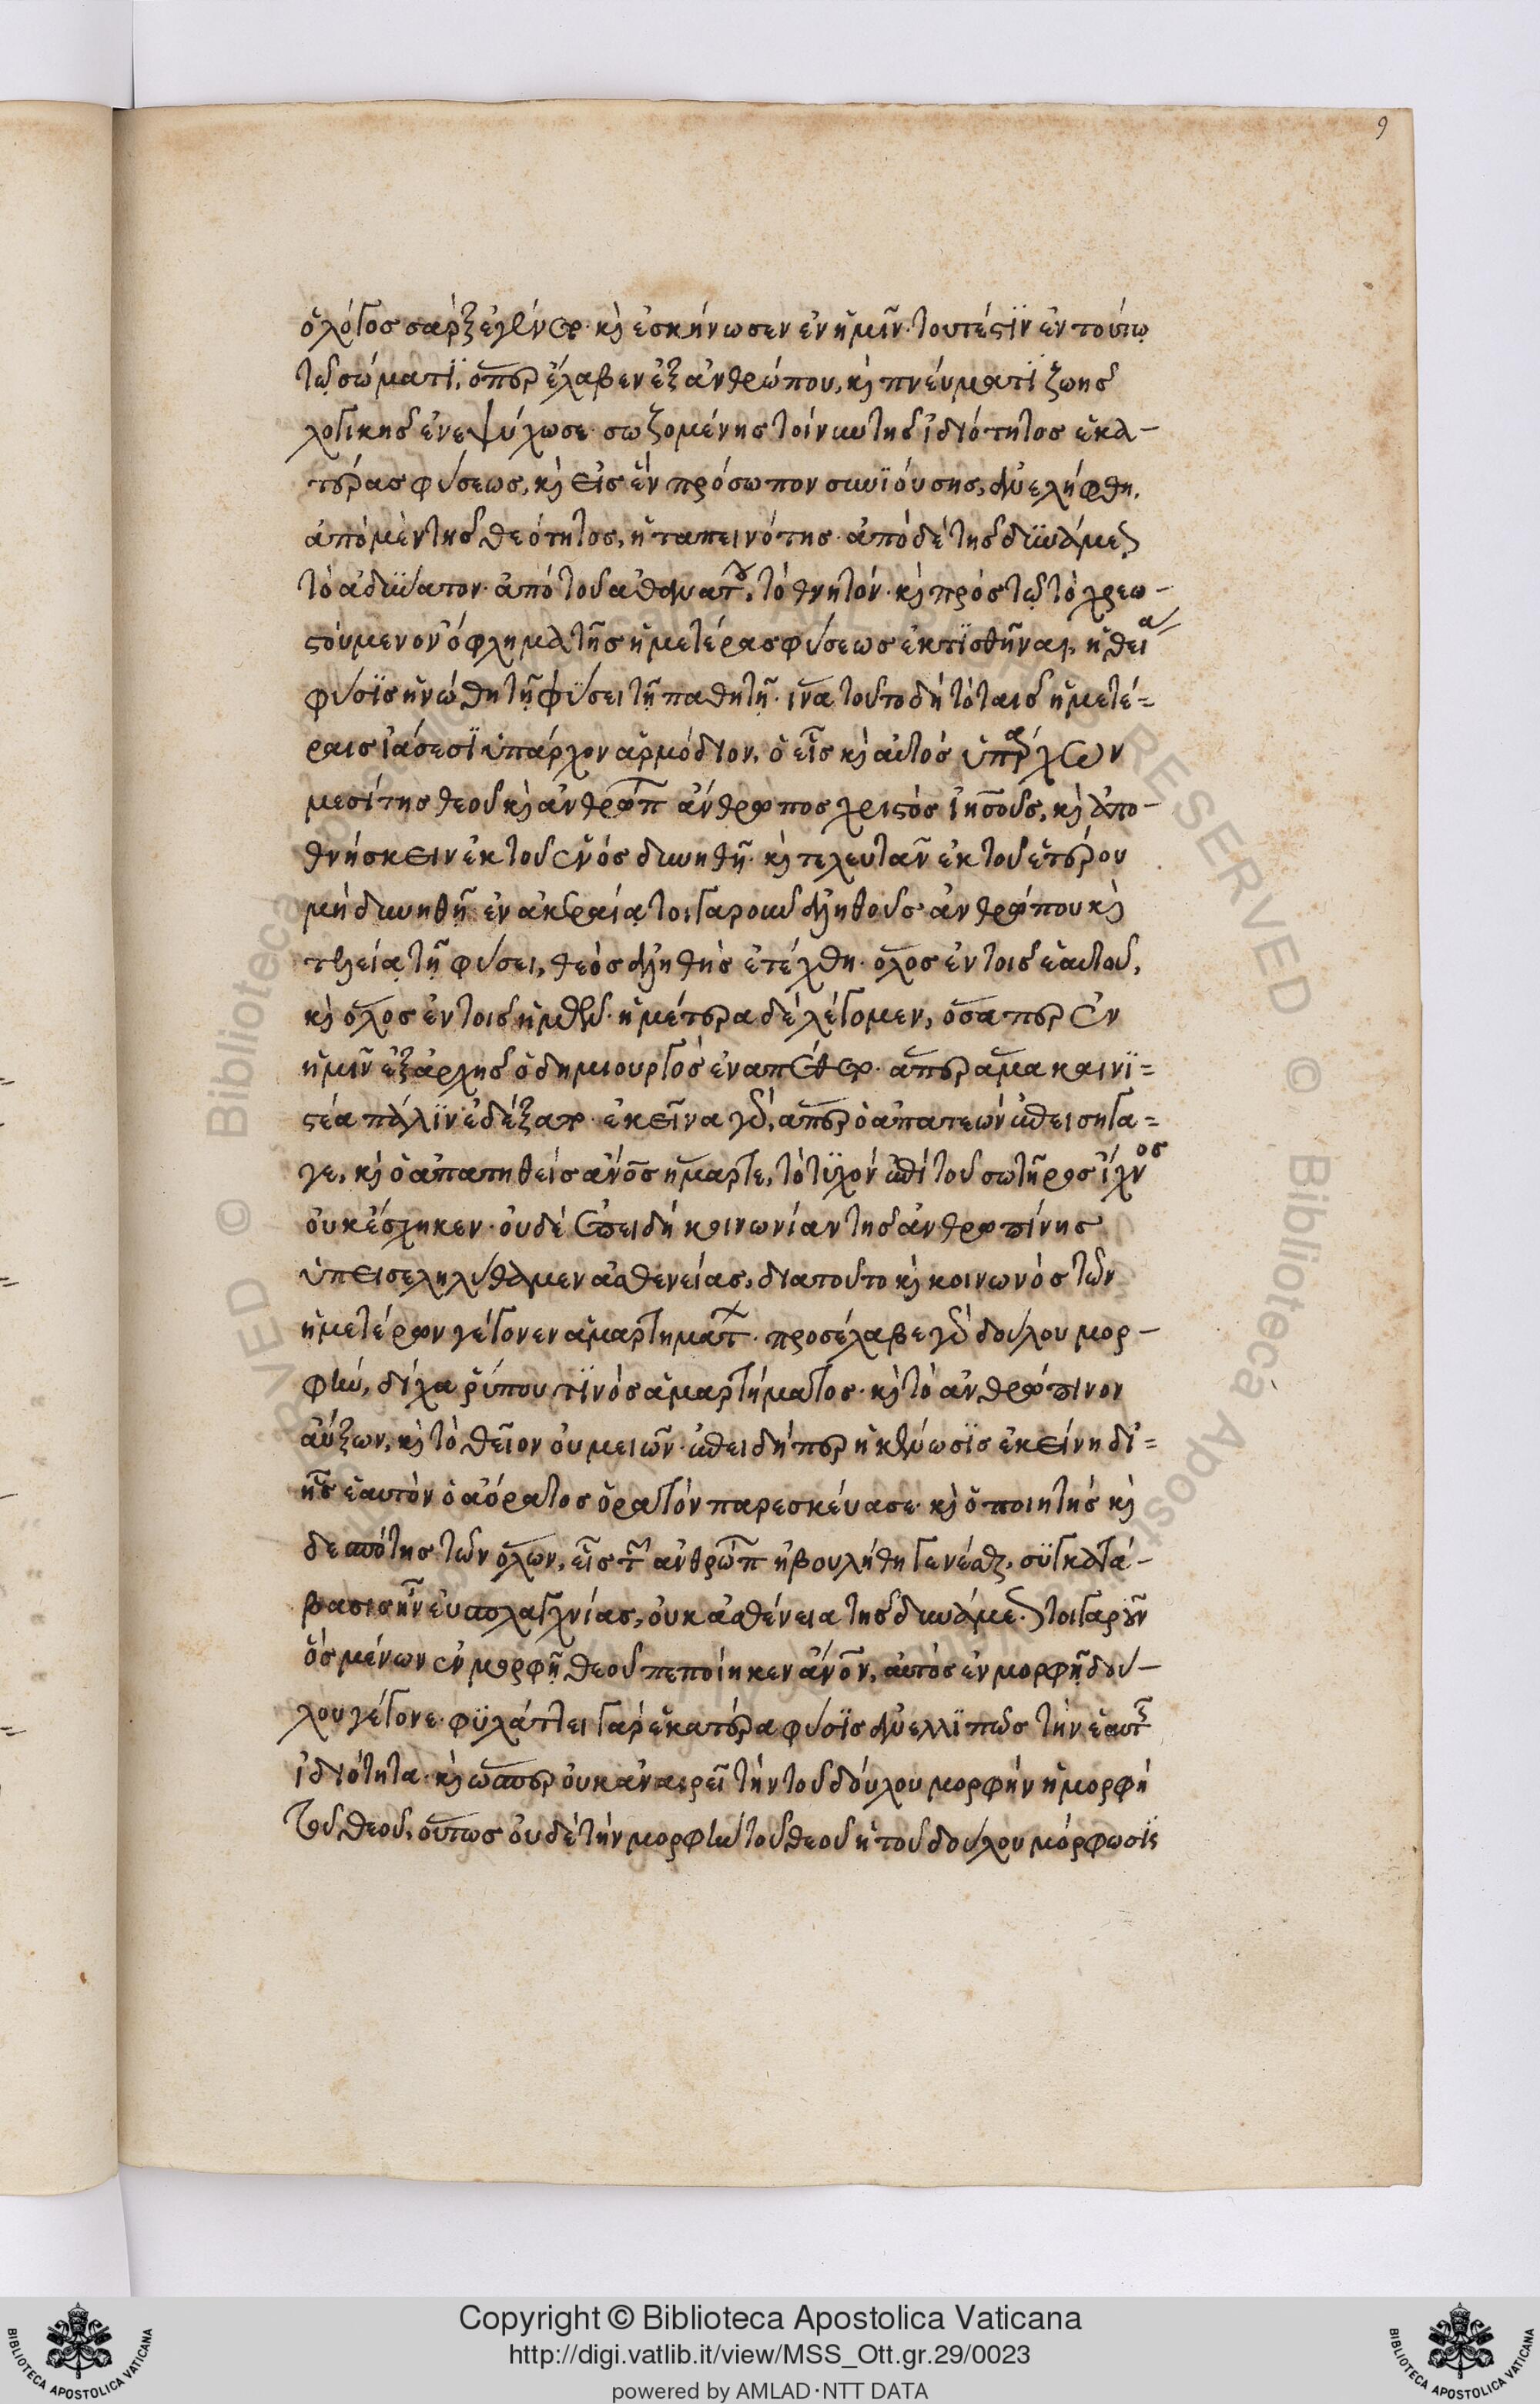 9
ὁ λόγος σὰρξ ἐγένετο· καὶ ἐσκήνωσεν ἐν ἡμῖν· τουτέστιν ἐν τούτῳ
τῷ σώματι, ὅπερ ἔλαβεν ἐξ ἀνθρώπου, καὶ πνεύματι ζωῆς
λογικῆς ἐνεψύχωσε· σωζομένης τοίνυν τῆς ἰδιότητος ἑκα-
τέρας φύσεως, καὶ εἰς ἓν πρόσωπον συνϊούσης, ἀνελήφθη,
ἀπὸ μὲν τῆς θεότητος, ἡ ταπεινότης· ἀπὸ δὲ τῆς δυνάμεως
τὸ ἀδύνατον· ἀπὸ τοῦ ἀθανάτου, τὸ θνητόν· καὶ πρὸς τῷ τὸ χρεω-
στούμενον ὄφλημα τῆς ἡμετέρας φύσεως ἐκτισθῆναι, ἡ θεία
φύσις ἡνώθη τῇ φύσει τῇ παθητῇ· ἵνα τοῦτο δὴ τὸ ταῖς ἡμετέ=
ραις ἰάσεσι ὑπάρχον ἁρμόδιον, ὁ εἷς καὶ αὐτὸς ὑπάρχων
μεσίτης θεοῦ καὶ ἀνθρώπων ἄνθρωπος χριστὸς ἰησοῦς, καὶ ἀπο-
θνήσκειν ἐκ τοῦ ἑνὸς δυνηθῇ· καὶ τελευτᾶν ἐκ τοῦ ἑτέρου
μὴ δυνηθῇ· ἐν ἀκεραίᾳ τοιγαροῦν ἀληθοῦς ἀνθρώπου καὶ
τελείᾳ τῇ φύσει, θεὸς ἀληθὴς ἐτέχθη· ὅλος ἐν τοῖς ἑαυτοῦ,
καὶ ὅλος ἐν τοῖς ἡμῶν· ἡμέτερα δὲ λέγομεν, ὅσαπερ ἐν
ἡμῖν ἐξ ἀρχῆς ὁ δημιουργὸς ἐναπέθετο· ἅπερ ἅμα καινι=
στέα πάλιν ἐδέξατο· ἐκεῖνα γὰρ, ἅπερ ὁ ἀπατεὼν ἐπεισήγα=
γε, καὶ ὁ ἀπατηθεὶς ἄνος ἥμαρτε, τὸ τυχὸν ἐπὶ τοῦ σωτῆρος ἴχνος
οὐκ ἔσχηκεν· οὐδὲ ἐπειδὴ κοινωνίαν τῆς ἀνθρωπίνης
ὑπεισεληλύθαμεν ἀσθενείας, διατοῦτο καὶ κοινωνὸς τῶν
ἡμετέρων γέγονεν ἁμαρτημάτων· προσέλαβε γὰρ δούλου μορ-
φὴν, δίχα ῥύπου τινὸς ἁμαρτήματος· καὶ τὸ ἀνθρώπινον
αὔξων, καὶ τὸ θεῖον οὐ μειῶν· ἐπειδήπερ ἡ κένωσις ἐκείνη δι=
ἧς ἑαυτὸν ὁ ἀόρατος ὁρατὸν παρεσκεύασε· καὶ ὁ ποιητὴς καὶ
δεσπότης τῶν ὅλων, εἷς τῶν ἀνθρώπων ἠβουλήθη γενέσθαι, συγκατά-
βασις ἦν εὐσπλαγχνίας, οὐκ ἀσθένεια τῆς δυνάμεως. τοιγαροῦν
ὃς μένων ἐν μορφῇ θεοῦ πεποίηκεν ἄνον, αὐτὸς ἐν μορφῇ δού-
λου γέγονε· φυλάττει γὰρ ἑκατέρα φύσις ἀνελλιπῶς τὴν ἑαυτῆς
ἰδιότητα· καὶ ὥσπερ οὐκ ἀναιρεῖ τὴν τοῦ δούλου μορφὴν ἡ μορφὴ
τοῦ θεοῦ, οὕτως οὐδὲ τὴν μορφὴν τοῦ θεοῦ ἡ τοῦ δούλου μόρφωσις
Copyright © Biblioteca Apostolica Vaticana
http://digi.vatlib.it/view/MSS_Ott.gr.29/0023
powered by AMLAD·NTT DATA